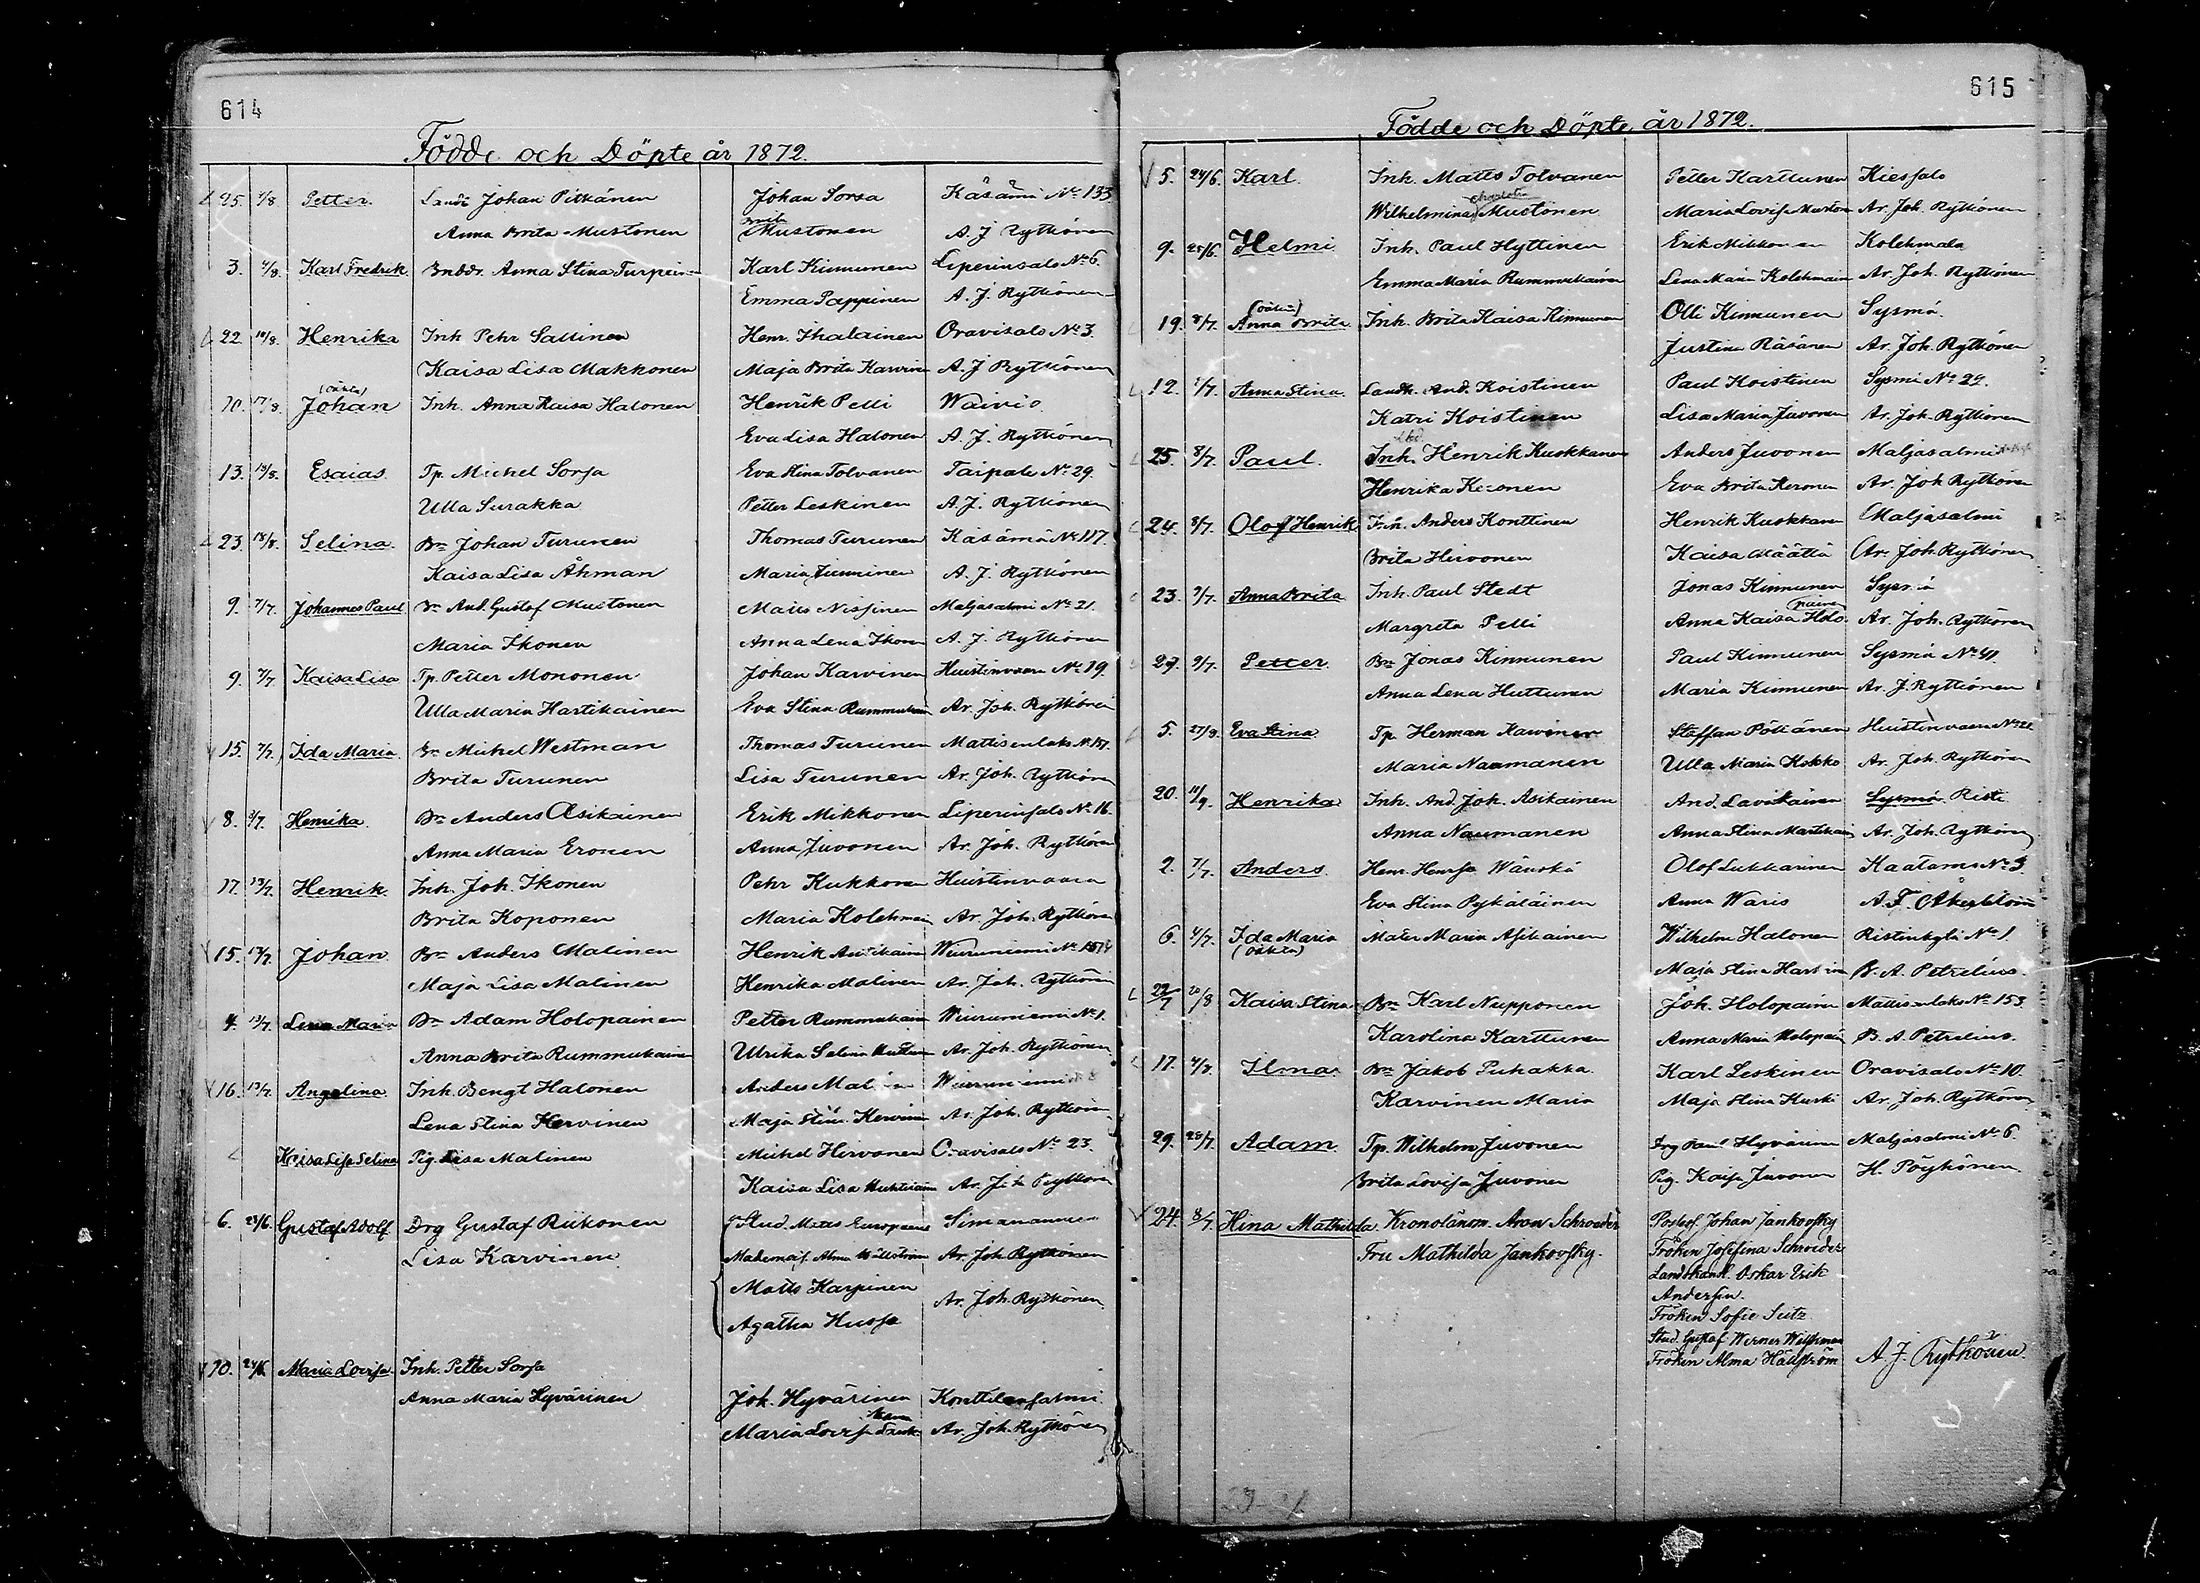 614
Födde och Döpte år 1872.
25. 4/8 Petter. Landb Johan Pitkänen Johan Sorsa Käsämä No 133
Anna Brita Mustonen Mustonen A. J Rytkönen
3. 4/8. Karl Fredrik Anna Stina Turpein Karl Kinnunen Liperinsalo No 6.
Emma Pappinen A. J. Rytkönen
22 10/8. Henrika Inh Pehr Sallinen Henr. Ihalainen Oravisalo No 3.
Kaisa Lisa Makkonen Maja Brita Karvinen A. J Rytkönen
(oäkta)
10. 17/8. Johan Inh. Anna Kaisa Halonen Henrik Pelli Waivio
Eva Lisa Halonen A. J. Rytkönen
13. 18/8. Esaias Tp. Michel Sorsa Eva Stina Tolvanen Taipale No 29.
Ulla Surakka Petter Leskinen A. J. Rytkönen
23. 18/8. Selina. Bn Johan Turunen Thomas Turunen Käsämä No 117.
Kaisa Lisa Åhman Maria Turunen A. J. Rytkönen
9. 7/7. Johannes Paul Bn And. Gustaf Mustonen Matts Nissinen Maljasalmi No 21.
Maria Ikonen Anna Lena Ikonen A. J. Rytkönen
9. 7/7. Kaisa Lisa Tp. Petter Mononen Johan Karvinen Huistinvaara No 19.
Ulla Maria Hartikainen Eva Stina Rummukain Ar. Joh. Rytkönen
15. 7/7. Ida Maria Bn Michel Westman Thomas Turunen Mattisenlaks No 157.
Brita Turunen Lisa Turunen Ar. Joh. Rytkönen
8. 9/7. Henrika Bn Anders Asikainen Erik Mikkonen Liperinsalo No 16.
Anna Maria Eronen Anna Juvonen Ar. Joh. Rytkönen
17. 13/7. Henrik Inh. Joh. Ikonen Pehr Kukkonen Huistinvaara
Brita Koponen Maria Kolehmain Ar. Joh. Rytkönen
15. 13/7. Johan Bn Anders Malinen Henrik Asikainen Wuoruniemi
Maja Lisa Malinen Henrika Malinen Ar. Joh. Rytkönen
4. 13/7. Lena Maria Bn Adam Holopainen Petter Rummukain Wuoruniemi No 1.
Anna Brita Rummukainen Ulrika Selina Ar. Joh. Rytkönen
16. 13/7. Angelina Inh. Bengt Halonen Anders Wuoruniemi
Lena Stina Hervinen Maja Stina Kervinen Ar. Joh. Rytkönen
Kaisa Lisa Selina Pig. Lisa Malinen Michel Hirvonen Oravisalo No 23.
Kaisa Lisa Ar. Joh Rytkönen
6. 23/6. Gustaf Adolf Drg Gustaf Riikonen Stud. Matts Europaeus Simananniemi
Lisa Karvinen Mademois. Alma Hällström Ar. Joh. Rytkönen
Matts Karpinen
Ar. Joh. Rytkönen.
Agatha Hussa
10. 24/6. Maria Lovisa. Inh. Petter Sorsa
Anna Maria Hyvärinen Joh. Hyvärinen Konttilansalmi
Maria Lovisa Ar. Joh. Rytkönen
615
Födde och Döpte år 1872.
5. 24/6. Karl. Inh. Matts Tolvanen Petter Karttunen Kiessalo
Wilhelmina Mustonen Maria Lovisa Muston Ar. Joh. Rytkönen
9. 25/6. Helmi Inh. Paul Hyttinen Erik Mikkonen Kolehmala
Emma Maria Rummukainen Lena Maria Kolehmain Ar. Joh. Rytkönen
(oäkta)
19. 8/7. Anna Brita Inh. Brita Kaisa Kinnunen Olli Kinnunen Sysmä.
Justina Räsänen Ar. Joh. Rytkönen
12. 1/7. Anna Stina. Landb. And. Koistinen Paul Koistinen Sysmä No 29.
Katri Koistinen Lisa Maria Juvonen Ar. Joh. Rytkönen
25. 8/7. Paul. Inh. Henrik Kuokkanen Anders Juvonen Maljasalmi
Henrika Keronen Eva Brita Keronen Ar. Joh Rytkönen
24. 8/7. Olof Henrik Inh. Anders Konttinen Henrik Kuokkanen Maljasalmi
Brita Hirvonen Kaisa Määttä Ar. Joh. Rytkönen
23. 9/7. Anna Brita Inh. Paul Stedt Jonas Kinnunen Sysmä
Margreta Pelli Anna Kaisa Holo painen Ar. Joh. Rytkönen
29. 9/7. Petter. Bn Jonas Kinnunen Paul Kinnunen Sysmä No 41.
Anna Lena Huttunen Maria Kinnunen Ar. J. Rytkönen
5. 27/8. Eva Stina Tp. Herman Karvinen Staffan Pöllänen Huistinvaara No 21
Maria Naumanen Ulla Maria Kokko Ar. Joh. Rytkönen
20. 11/9. Henrika Inh. And. Joh. Asikainen And. Lavikainen Sysmä Risti
Anna Naumanen Anna Stina Martikain Ar. Joh. Rytkönen
2. 7/7. Anders Henr. Henrss Wänskä Olof Lukkarinen Kaatamo No 3.
Eva Stina Pykäläinen Anna Waris A. F. Åkerblom
6. 4/7. Ida Maria Mater Maria Asikainen Wilhelm Halonen Ristinkylä No 1.
(oäkta) Maja Stina B. A. Petrelius.
22/7 20/8 Kaisa Stina Bn Karl Nupponen Joh. Holopainen Mattisenlaks No 153.
Karolina Karttunen Anna Maria Holopain B. A. Petrelius.
17. 4/8. Ilma. Bn Jakob Puhakka Karl Leskinen Oravisalo No 10.
Karvinen Maria Maja Stina Huski Ar. Joh. Rytkönen
29. 28/7. Adam. Tp. Wilhelm Juvonen Drg Paul Hyvärinen Maljasalmi No 6.
Brita Lovisa Juvonen Pig. Kaisa Juvonen H. Pöyhönen
24. 8/7. Hina Mathilda. Kronolänsm. Aron Schroeder Postexp. Johan Jankovsky
Fru Mathilda Jankovsky. Fröken Josefina Schroeder
Landskansl. Oskar Erik
Andersin.
Fröken Sofie Seitz
Stud. Gustaf Werner
Fröken Alma Hällström A. J. Rytkönen.